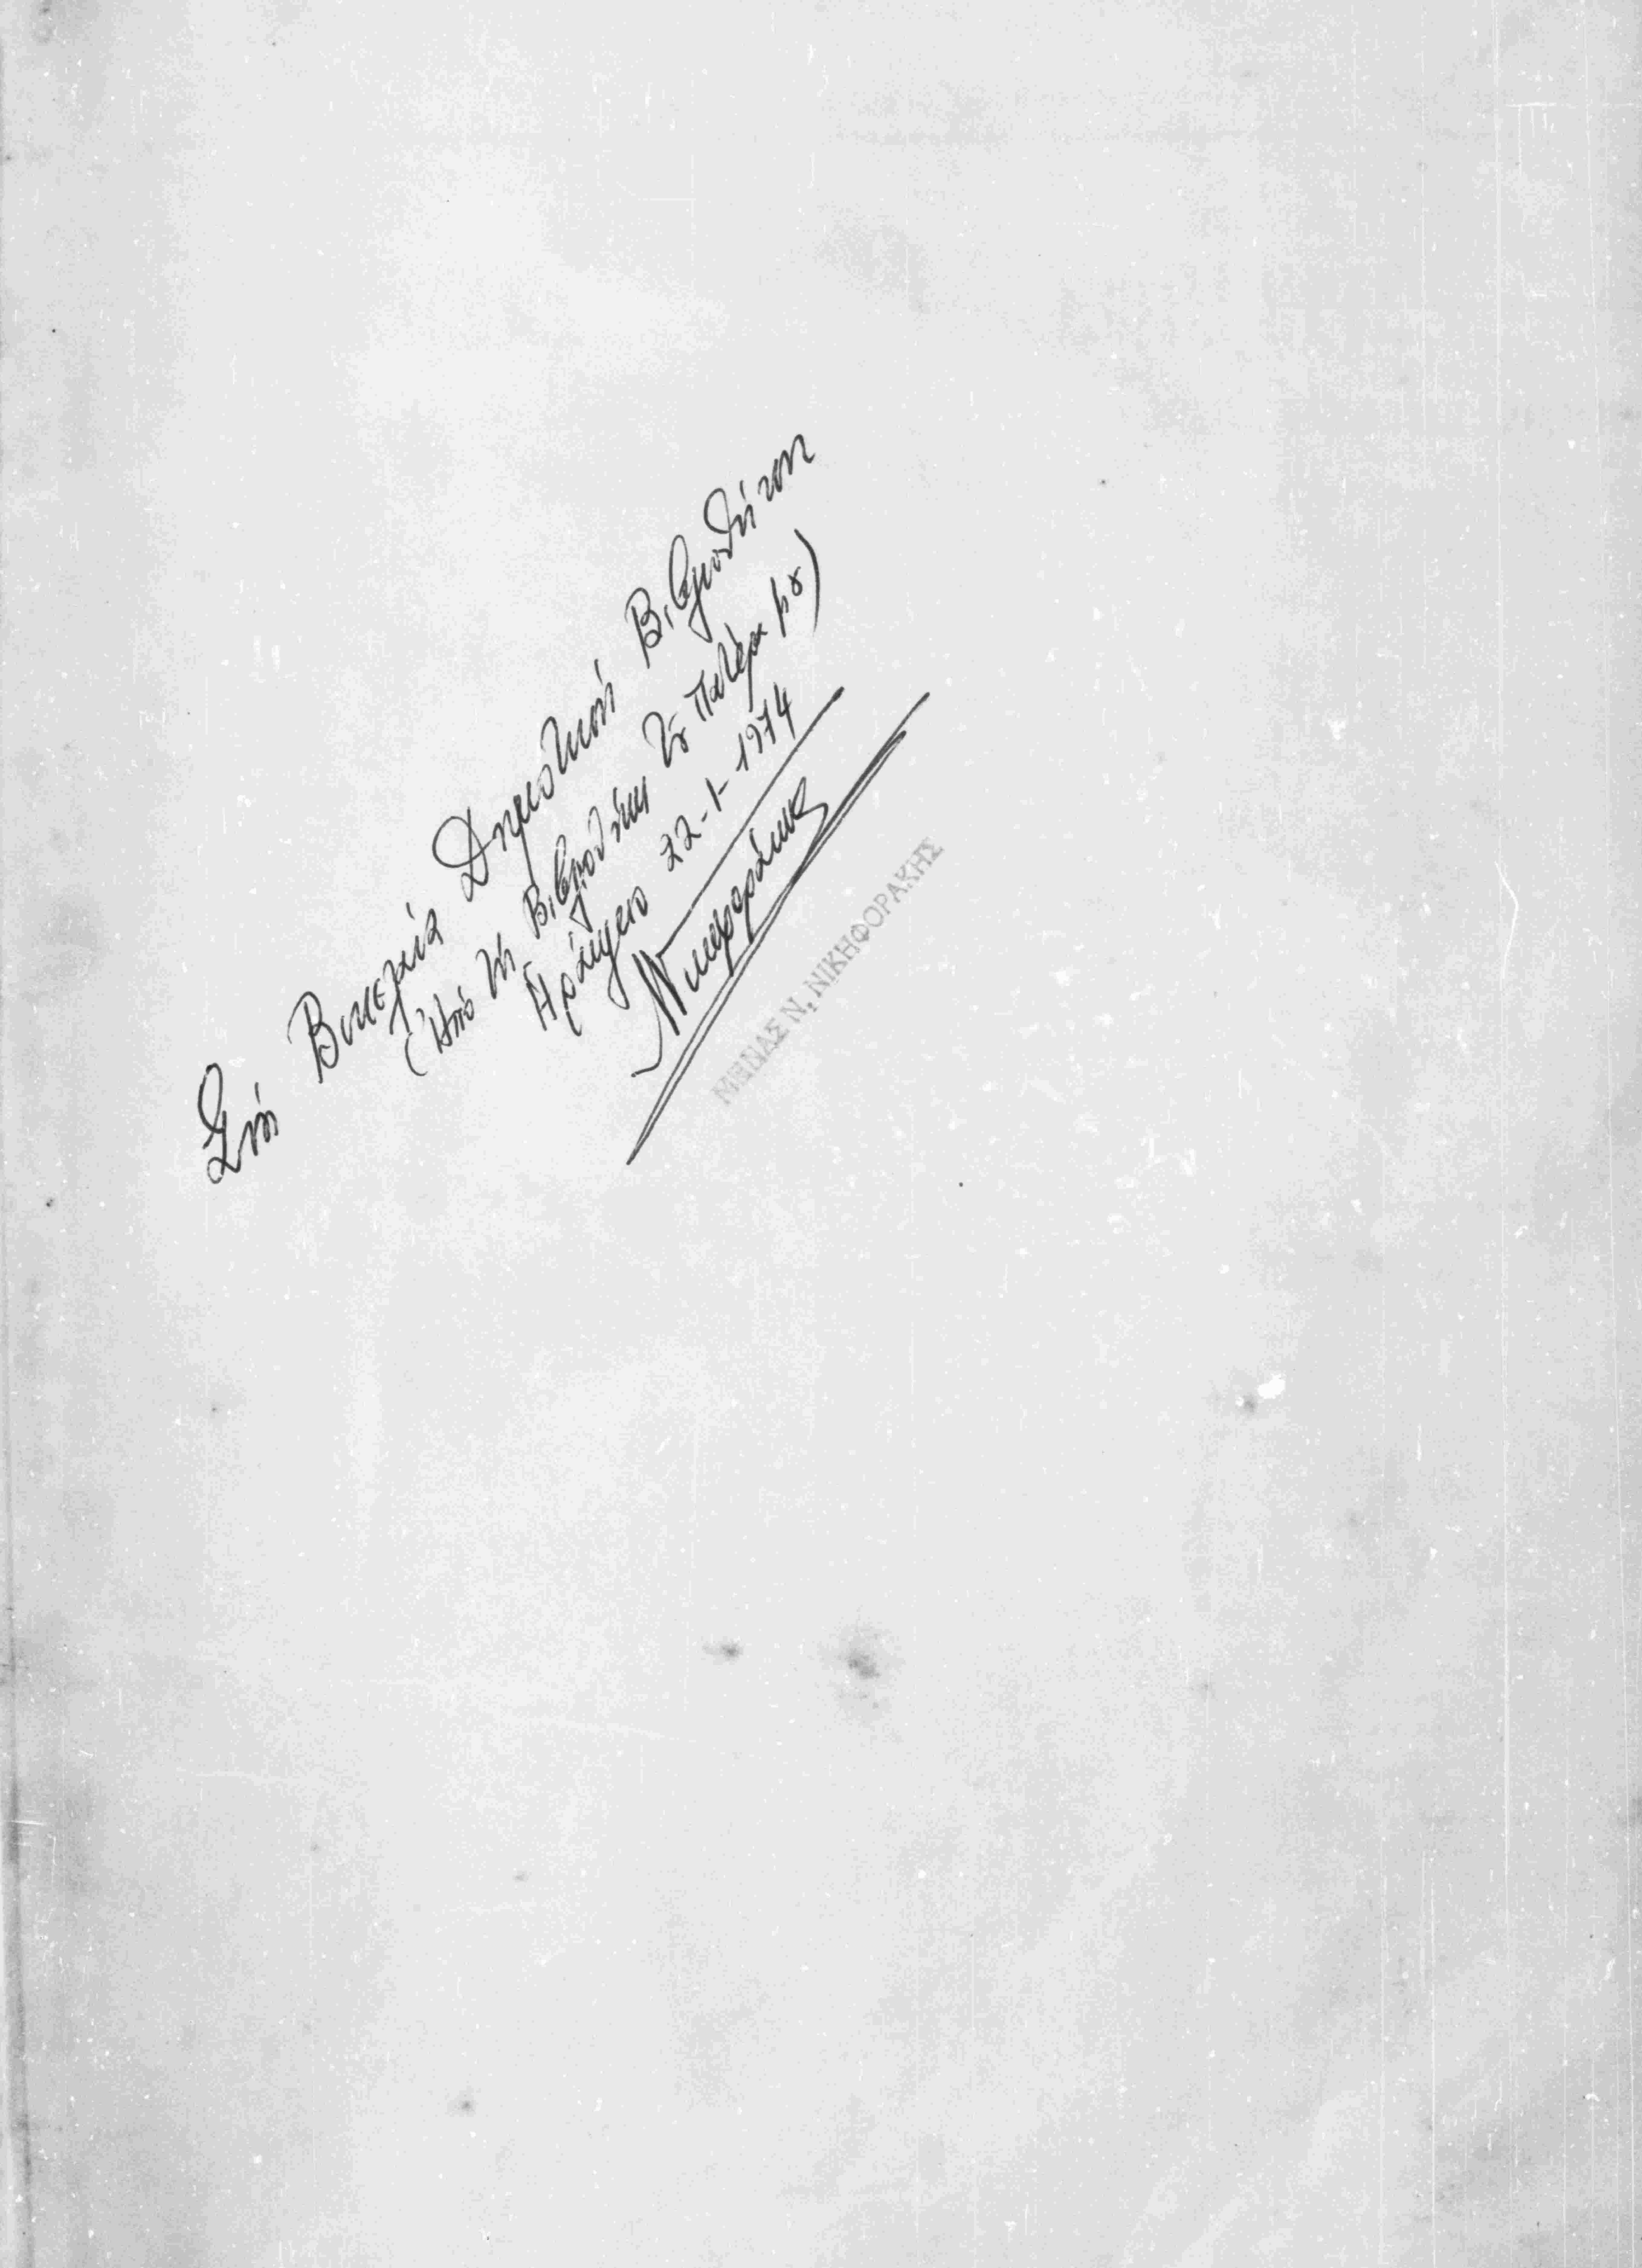 Στή Βικελαία Δημοτική Βιβλιοθήκη
(Ἀπό τή Βιβλιοθήκη τȣ̃ Πατέρα μȣ)
Ἡράκλειο 22-1-1974
Νικηφοράκης
ΜΗΝΑΣ Ν. ΝΙΚΗΦΟΡΑΚΗΣ